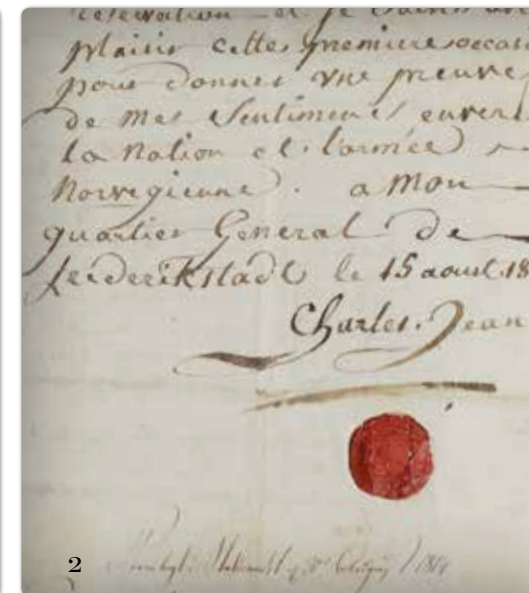 plaisir cette premiere occasi
pour donner une preuve
de mes Sentimens enver
la Nation et l'armée
Norvegienne. a Mon
quartier General de
frederikstadt le 15 aout 18
Charles. Jean
2
1814